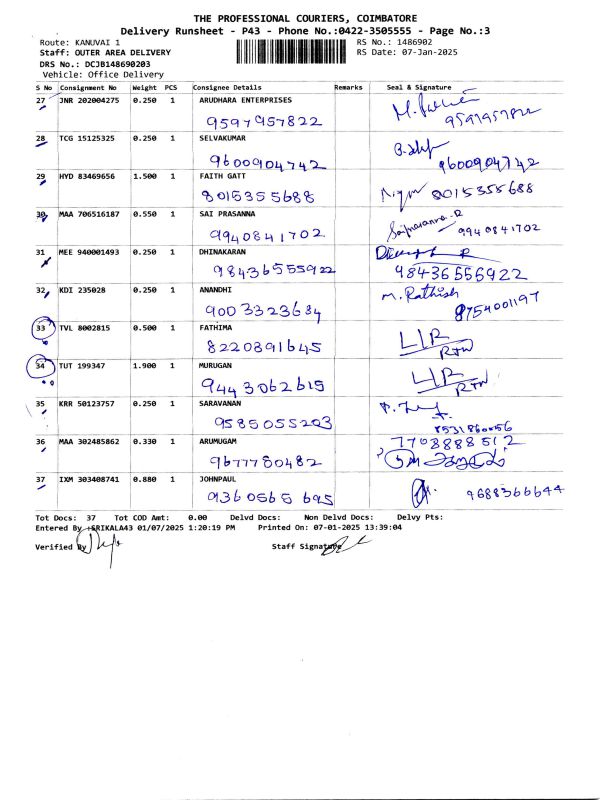 THE PROFESSIONAL COURIERS, COIMBATORE
Delivery Runsheet - P43 - Phone No.:0422-3505555 - Page No.:3
Route: KANUVAI 1 RS No.: 1486902
Staff: OUTER AREA DELIVERY RS Date: 07-Jan-2025
DRS No.: DCJB148690203
Vehicle: Office Delivery
S No Consignment No Weight PCS Consignee Details Remarks Seal & Signature
27 JNR 202004275 0.250 1 ARUDHARA ENTERPRISES
9597957822 9597957822
28 TCG 15125325 0.250 1 SELVAKUMAR
9600904742 9600904742
29 HYD 83469656 1.500 1 FAITH GATT
8015355688 8015355688
30 MAA 706516187 0.550 1 SAI PRASANNA Saiprasanna.R
9940841702 9940841702
31 MEE 940001493 0.250 1 DHINAKARAN
98436555922 98436556922
32 KDI 235028 0.250 1 ANANDHI M. Rathish
9003323684 8754001197
33 TVL 8002815 0.500 1 FATHIMA
8220891645 L/R RTN
34 TUT 199347 1.900 1 MURUGAN
9443062615 L/R RTN
35 KRR 50123757 0.250 1 SARAVANAN
9585055203 8531860056
36 MAA 302485862 0.330 1 ARUMUGAM 7708888512
9677780482
37 IXM 303408741 0.880 1 JOHNPAUL
9360565695 9688366644
Tot Docs: 37 Tot COD Amt: 0.00 Delvd Docs: Non Delvd Docs: Delvy Pts:
Entered By :SRIKALA43 01/07/2025 1:20:19 PM Printed On: 07-01-2025 13:39:04
Verified By Staff Signature